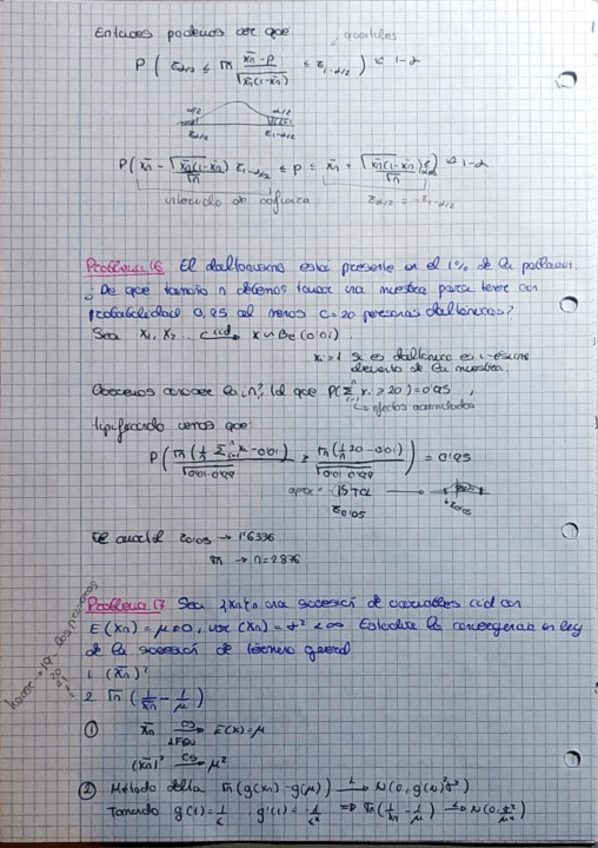 Entonces podemos ver que
cuantiles
P( z_{α/2} ≤ √n (x̄n - p)/√(x̄n(1-x̄n)) ≤ z_{1-α/2} ) ≃ 1-α
α/2 α/2
z_{α/2} z_{1-α/2}
P( x̄n - √(x̄n(1-x̄n))/√n z_{1-α/2} ≤ p ≤ x̄n + √(x̄n(1-x̄n))/√n ) ≃ 1-α
intervalo de confianza z_{α/2} = -z_{1-α/2}
Problema 16 El daltonismo está presente en el 1% de la población.
¿De que tamaño n debemos tomar una muestra para tener con
probabilidad 0,95 al menos c=20 personas daltónicas?
Sea X₁, X₂ ... c iid X∼Be(0'01)
xi = 1 si es daltónico es i-ésimo
elemento de la muestra.
Queremos conocer la n? tal que P(Σ xi ≥ 20) = 0'95,
efectos acumulados
tipificando vemos que:
P( √n(1/n Σ xi - 0'01)/√(0'01·0'99) ≥ √n(1/n 20 - 0'01)/√(0'01·0'99) ) = 0'95
aprox TCL
z_{0'05} z_{0'05}
El cuantil z_{0'05} →
→ n = 2836
Problema 17 Sea {Xn}n una sucesión de variables iid con
E(Xn) = μ ≠ 0, var(Xn) = σ² < ∞. Estudiar la convergencia en ley
de la sucesión de término general
1 (x̄n)²
2 √n (1/x̄n - 1/μ)
① x̄n →(cs) E(x) = μ
LFGN
(x̄n)² →(cs) μ²
② Método delta √n(g(xn) - g(μ)) →(L) N(0, g'(μ)²σ²)
Tomando g(t) = 1/t, g'(t) = -1/t² ⇒ √n(1/x̄n - 1/μ) →(L) N(0, σ²/μ⁴)
hacer → 19